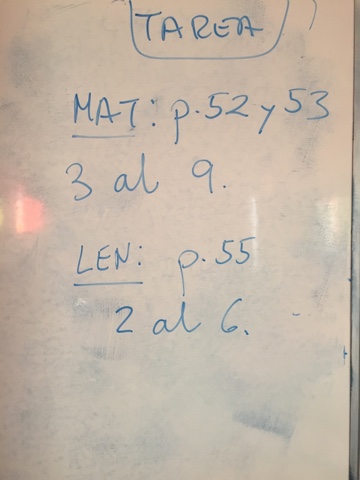 TAREA
MAT: p.52 y 53
3 al 9.
LEN: p.55
2 al 6.